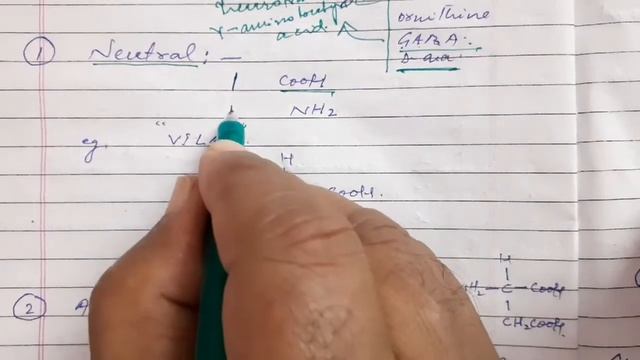 γ-amino butyric acid
ornithine
GABA:
① Neutral: —
1 COOH
1 NH2
eg. "VIL
H
COOH.
②
H
H2—C—COOH
CH2COOH